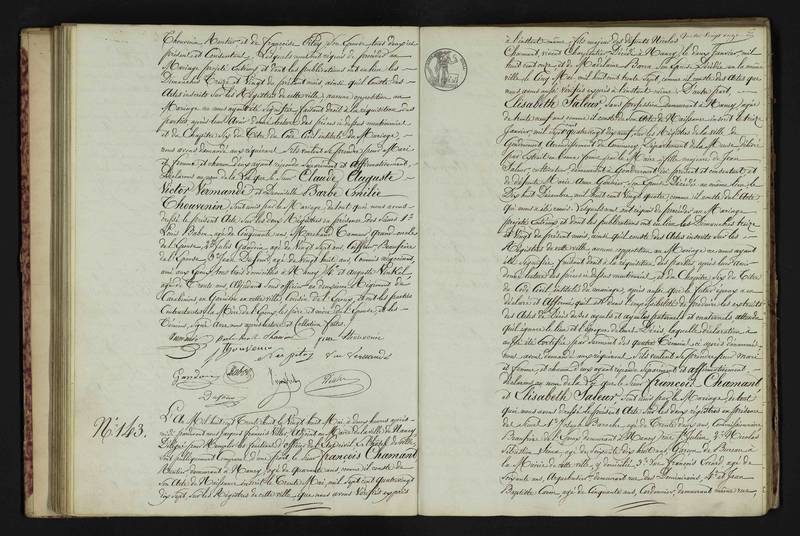 Thouvenin Rentier et de Françoise Pitoy son Epouse tous deux ici
présent et Consentant. Lesquels nous ont requis de procéder au
Mariage projeté Entre eux et dont les publications ont eu lieu les
Dimanches Treize et Vingt du présent mois ainsi qu'il Conste des
Actes inscrits sur les Registres de cette ville; aucune opposition au
Mariage ne nous ayant été signifiée, faisant droit à la réquisition des
parties, après leur Avoir donné lecture des pièces ci dessus mentionnées
et du Chapitre Six du Titre du Code Civil intitulé du Mariage,
nous avons demandé aux requérans s'ils veulent se prendre pour Mari
et femme, et chacun d'eux ayant répondu séparément et affirmativement,
déclarons au nom de la Loi que le Sieur Claude Auguste
Victor Vermandé et Demoiselle Barbe Emilie
Thouvenin sont unis par le Mariage, de tout quoi nous avons
dressé le présent Acte sur les deux Registres en présence des Sieurs 1°
Louis Babin, agé de Cinquante ans, Marchand Tanneur, Grand oncle
de l'Epouse, 2° Jules Gandin, agé de Vingt sept ans, Coiffeur, Beaufrère
de l'Epouse, 3° Jean Defin, agé de Vingt huit ans, Commis négociant,
ami aux Epoux, tous trois domiciliés à Nancy, 4° et Auguste Vinkel,
agé de Trente ans, Adjudant sous officier au deuxième Régiment de
Carabiniers en Garnison en cette ville, Cousin de l'Epoux, et ont les parties
Contractantes, la Mère de l'Epoux, les père et mère de l'Epouse, et les
Témoins, signé Avec nous après lecture et collation faites.
Thouvenin
N° 143.
L'An Mil huit cent Trente huit, le Vingt huit Mai, à deux heures après
midi, pardevant nous Jacques François Villers, Adjoint au Maire de la ville de Nancy
Délégué pour Remplir les fonctions d'officier de l'Etat civil
Sont publiquement Comparus d'une part, le Sieur François Chamant
Rentier, demeurant à Nancy, agé de quarante ans, comme il conste de
son Acte de Naissance inscrit le Trente Mai, mil Sept cent quatrevingt
dix sept, sur les Registres de cette ville que nous avons Vérifiés exprès
à l'instant même, fils majeur des défunts Nicolas
Chamant, vivant Charpentier, Décédé à Nancy, le deux janvier, mil
huit cent onze, et de Madelaine son Epouse, Décédée en la même
ville le Cinq Mai, mil huit cent Trente Sept, comme il conste des Actes que
nous avons aussi Vérifiés exprès à l'instant même; D'autre part,
Elisabeth Saleur, Sans profession, demeurant à Nancy, agée
de trente neuf ans, comme il conste de son Acte de Naissance inscrit le treize
Janvier, mil sept cent quatrevingt dix neuf, sur les Registres de la ville de
Gondrecourt, Arrondissement de Commercy, Département de la Meuse, délivré
par Extrait en bonne forme par le Maire, fille majeure de Jean
Saleur, cultivateur, demeurant à Gondrecourt, ici présent et consentant et
de défunte Marie Anne son Epouse, Décédée au même lieu, le
Dix huit Décembre, mil huit cent Vingt quatre, comme il conste de l'Acte
qui nous a été remis. Lesquels nous ont requis de procéder au Mariage
projeté Entre eux et dont les publications ont eu lieu les Dimanches Treize
et Vingt du présent mois, ainsi qu'il conste des Actes inscrits sur les
Registres de cette ville, aucune opposition au Mariage ne nous ayant
été signifiée, faisant droit à la réquisition des parties, après leur avoir
donné lecture des pièces ci dessus mentionnées et du Chapitre Six du Titre
du Code Civil intitulé du Mariage, après aussi que le futur époux a
déclaré et Affirmé qu'il est dans l'impossibilité de produire les extraits
des Actes de Décès de ses ayeuls et ayeules paternels et maternels attendu
qu'il ignore le lieu et l'époque de leurs Décès, laquelle déclaration a
aussi été Certifiée par Serment des quatre Témoins ci après dénommés,
nous avons demandé aux requérans s'ils veulent se prendre pour mari
et femme, et chacun d'eux ayant répondu séparément et affirmativement,
déclarons au nom de la Loi que le Sieur François Chamant
et Elisabeth Saleur sont unis par le Mariage, de tout
quoi nous avons dressé le présent Acte sur les deux registres en présence
des Sieurs 1° Joseph agé de Trente deux ans, Commissionnaire
Beaufrère de l'Epoux demeurant à Nancy 2° Nicolas
Sébastien agé de Soixante dix huit ans, Garçon de Bureau à
la Mairie de cette ville, y domicilié, 3° François agé de
Soixante ans, demeurant rue des Dominicains, 4° et Jean
Baptiste agé de Cinquante ans, Cordonnier, demeurant même rue,